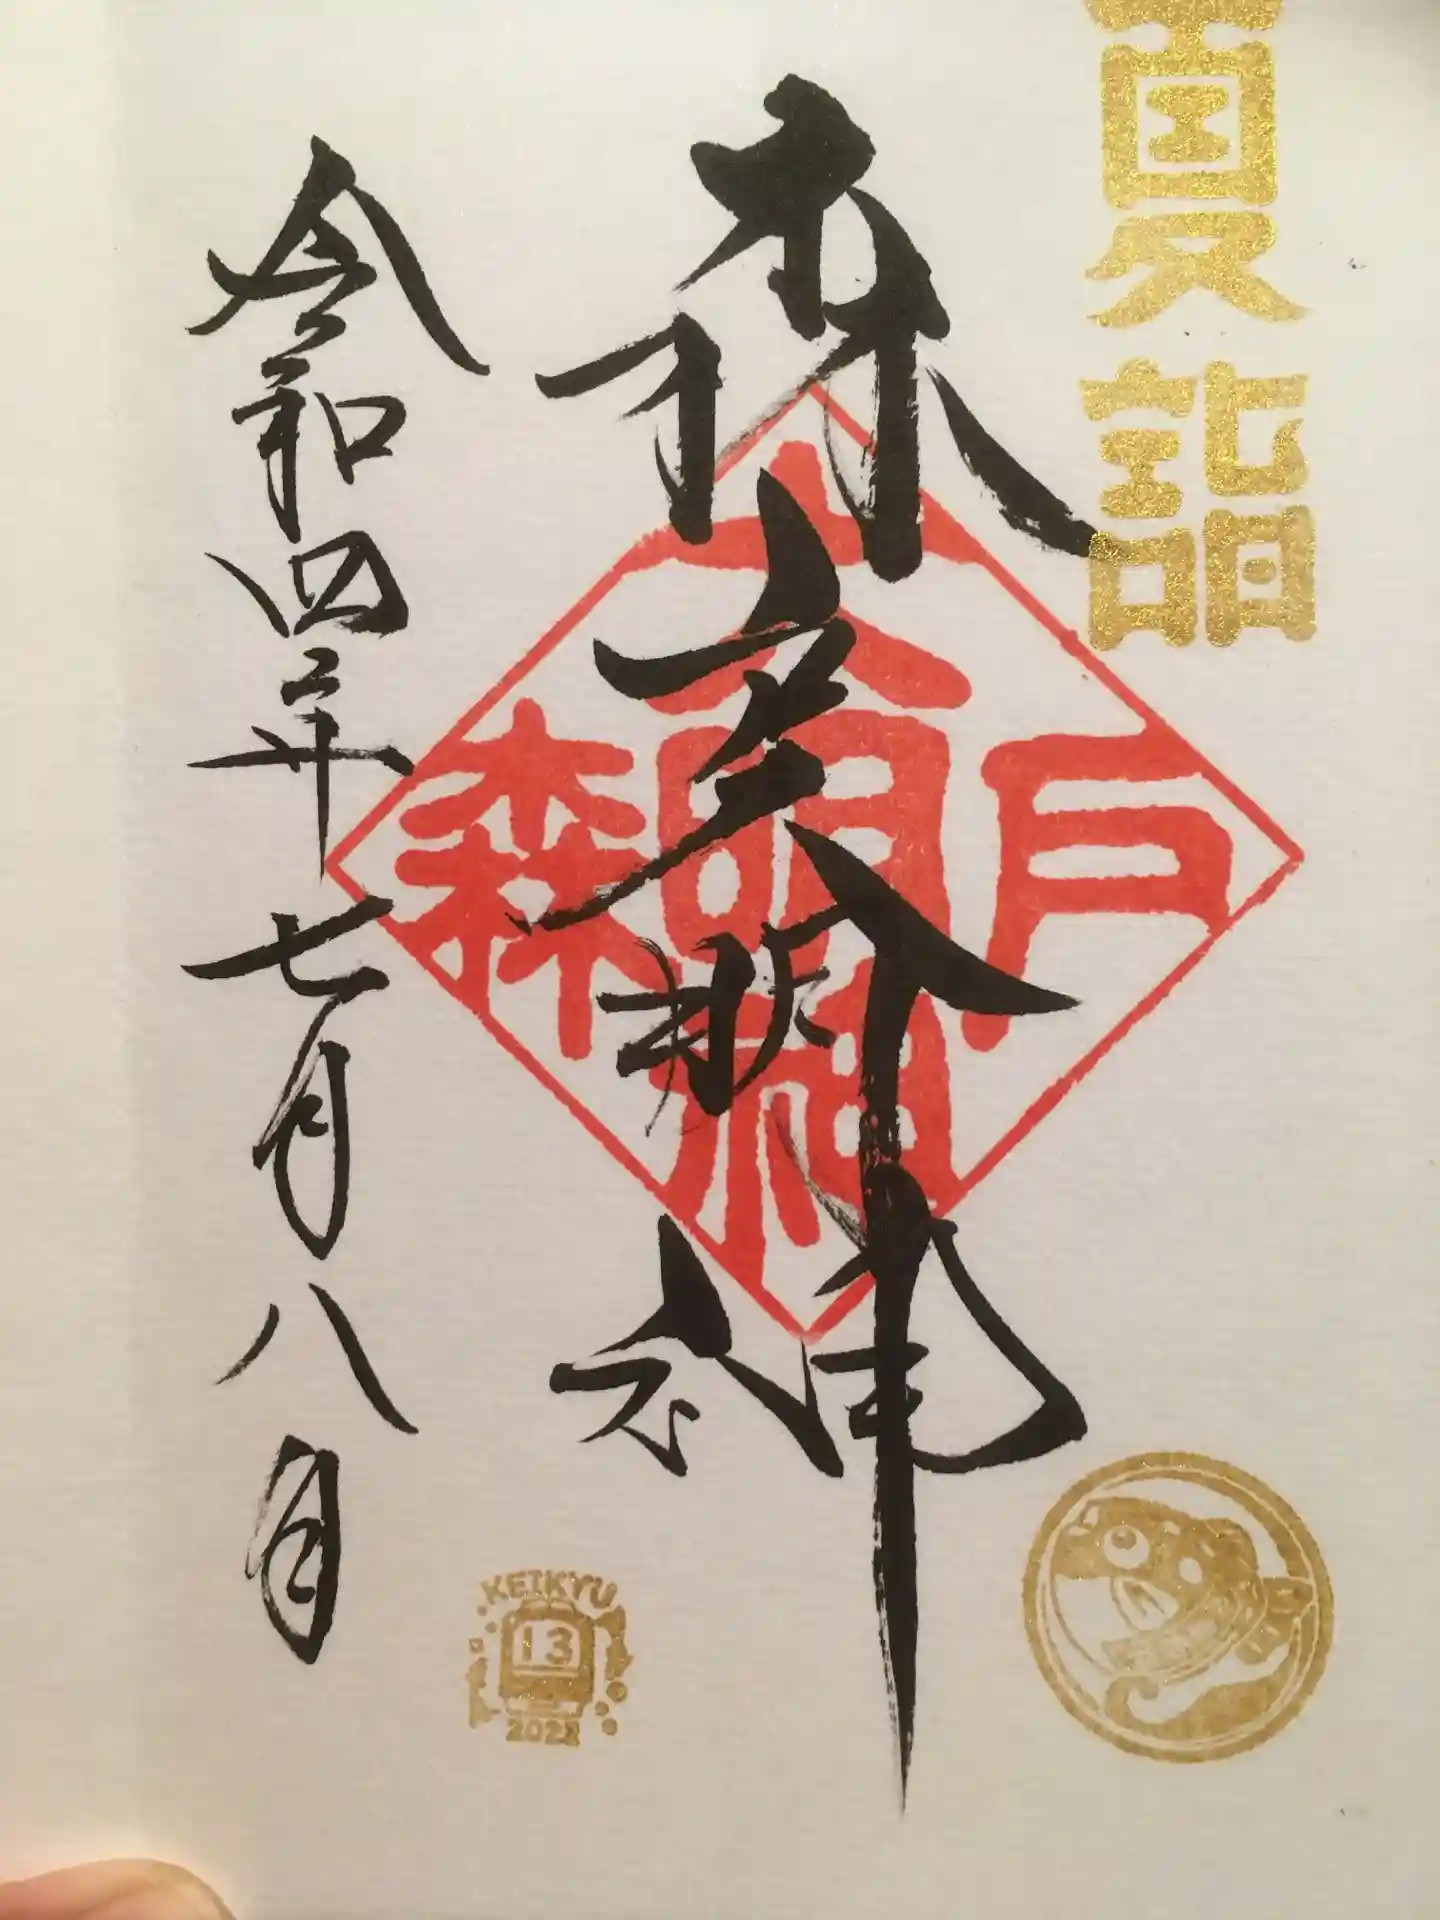 夏詣
森戸大明神
森戸大明神
令和四年七月八日
KEIKYU
13
2022